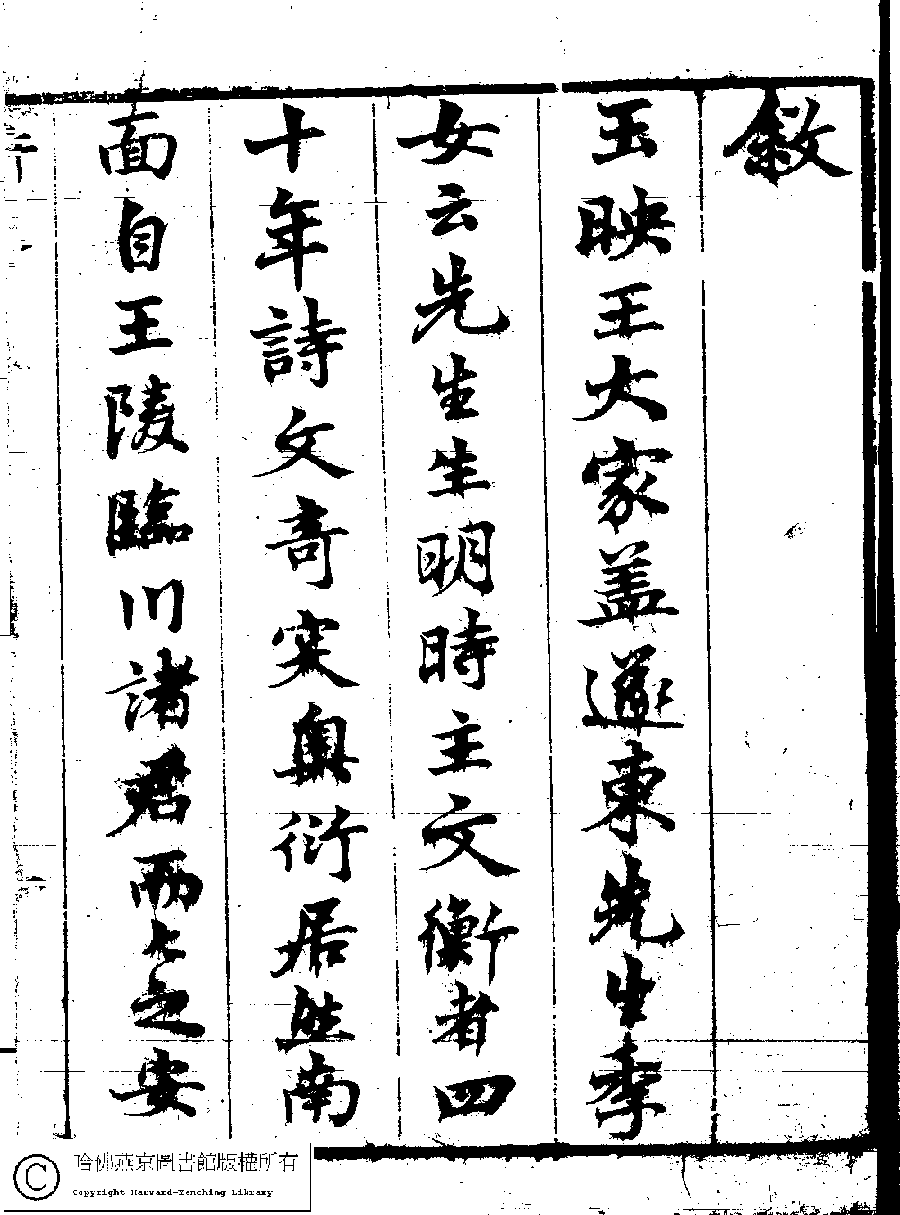 敘
玉映王大家蓋遂東先生季
女云先生生明時主文衡者四
十年詩文奇突奧衍居然南
面自王陵臨川諸君而上之安
哈佛燕京圖書館版權所有
Copyright Harvard-Yenching Library